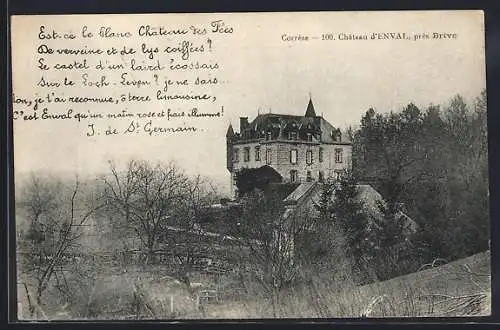 Est-ce le blanc Château des Fées
De verveine et de lys coiffées ?
Le castel d'un laird écossais
Sur le Loch-Leven ? je ne sais...
Non, je t'ai reconnue, ô terre limousine,
C'est Enval qu'un matin rose et frais illumine !
J. de St Germain.
Corrèze — 100. Château d'ENVAL, près Brive